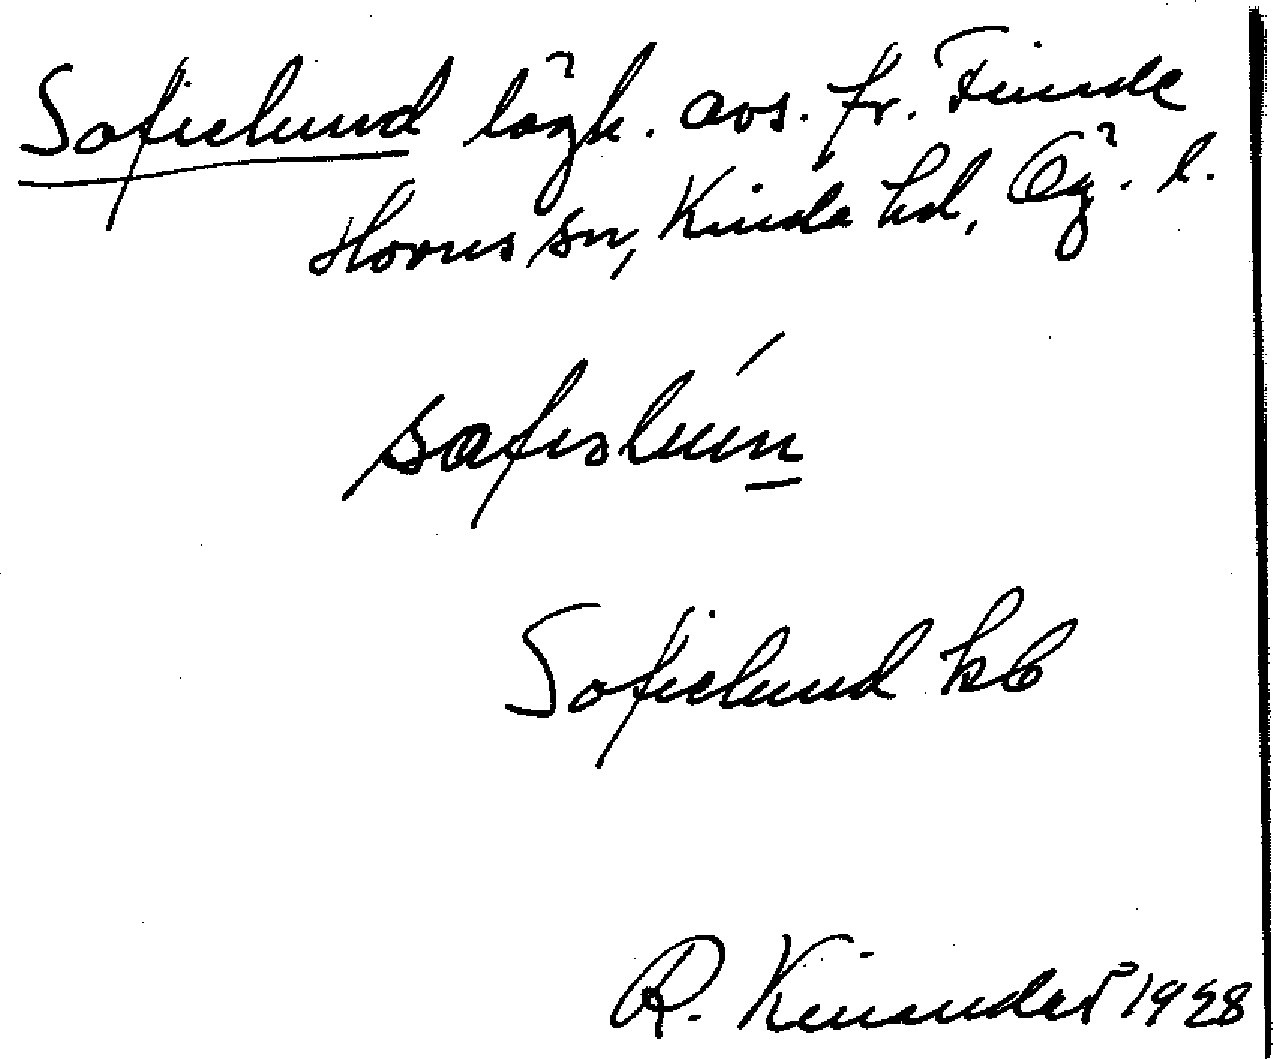 Sofielund lägh. avs. fr. Finde
Horns sn, Kinda hd, Ög. l.
Sofielund kb
R. Kinander 1928